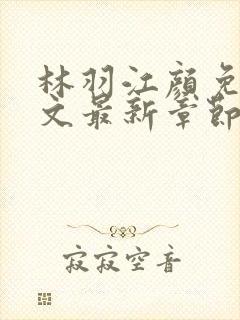 林羽江颜免
文最新章节
寂寂空音